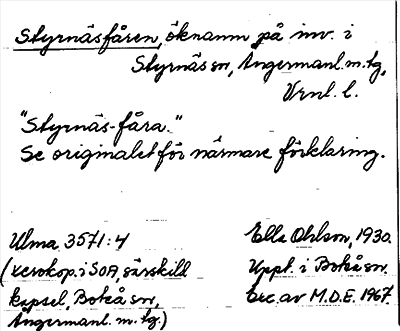 Styrnäsfåren, öknamn på inv. i
Styrnäs sn, Ångermanl. m. tg,
Vrnl. l.
"Styrnäs-fåra."
Se originalet för närmare förklaring.
Ulma 3571:4
(xerokop. i SOA, särskild
kapsel, Boteå sn,
Ångermanl. m. tg.)
Ella Ohlson, 1930.
Uppt. i Boteå sn.
Exc. av M.D.E. 1967.